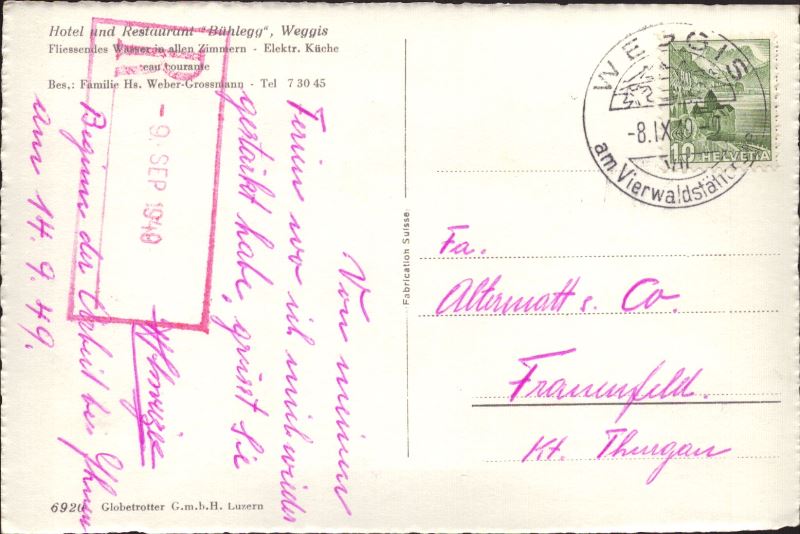 Hotel und Restaurant "Bühlegg", Weggis
Fliessendes Wasser in allen Zimmern - Elektr. Küche
eau courante
Bes.: Familie Hs. Weber-Grossmann - Tel 7 30 45
- 9. SEP 1949
Von meinen
Ferien wo ich mich wieder
gestärkt habe, grüsst Sie
Beginn der Arbeit bei Ihnen
am 14. 9. 49.
6920 Globetrotter G.m.b.H. Luzern
Fabrication Suisse.
WEGGIS
-8.IX.49
am Vierwaldstät
10 HELVETIA
Fa.
Altermatt & Co.
Frauenfeld.
Kt. Thurgau